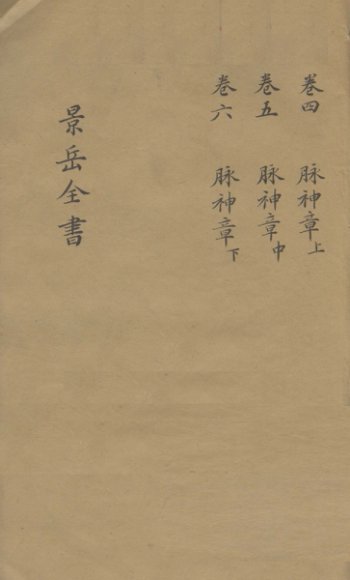 卷四 脉神章上
卷五 脉神章中
卷六 脉神章下
景岳全書